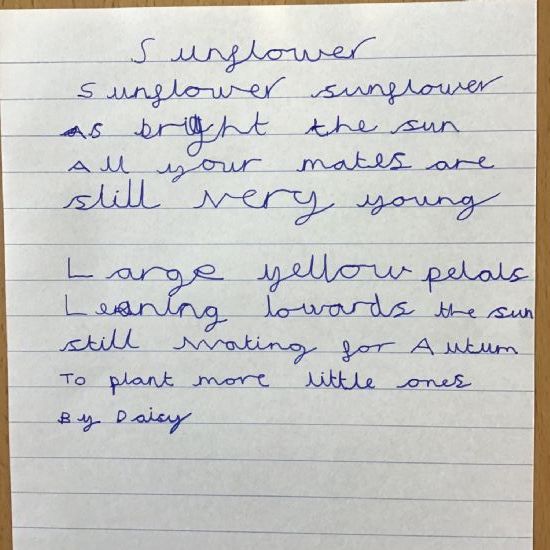 Sunflower
Sunflower sunflower
As bright the sun
All your mates are
still very young
Large yellow petals
Leaning towards the sun
still wating for Autum
To plant more little ones
By Daisy